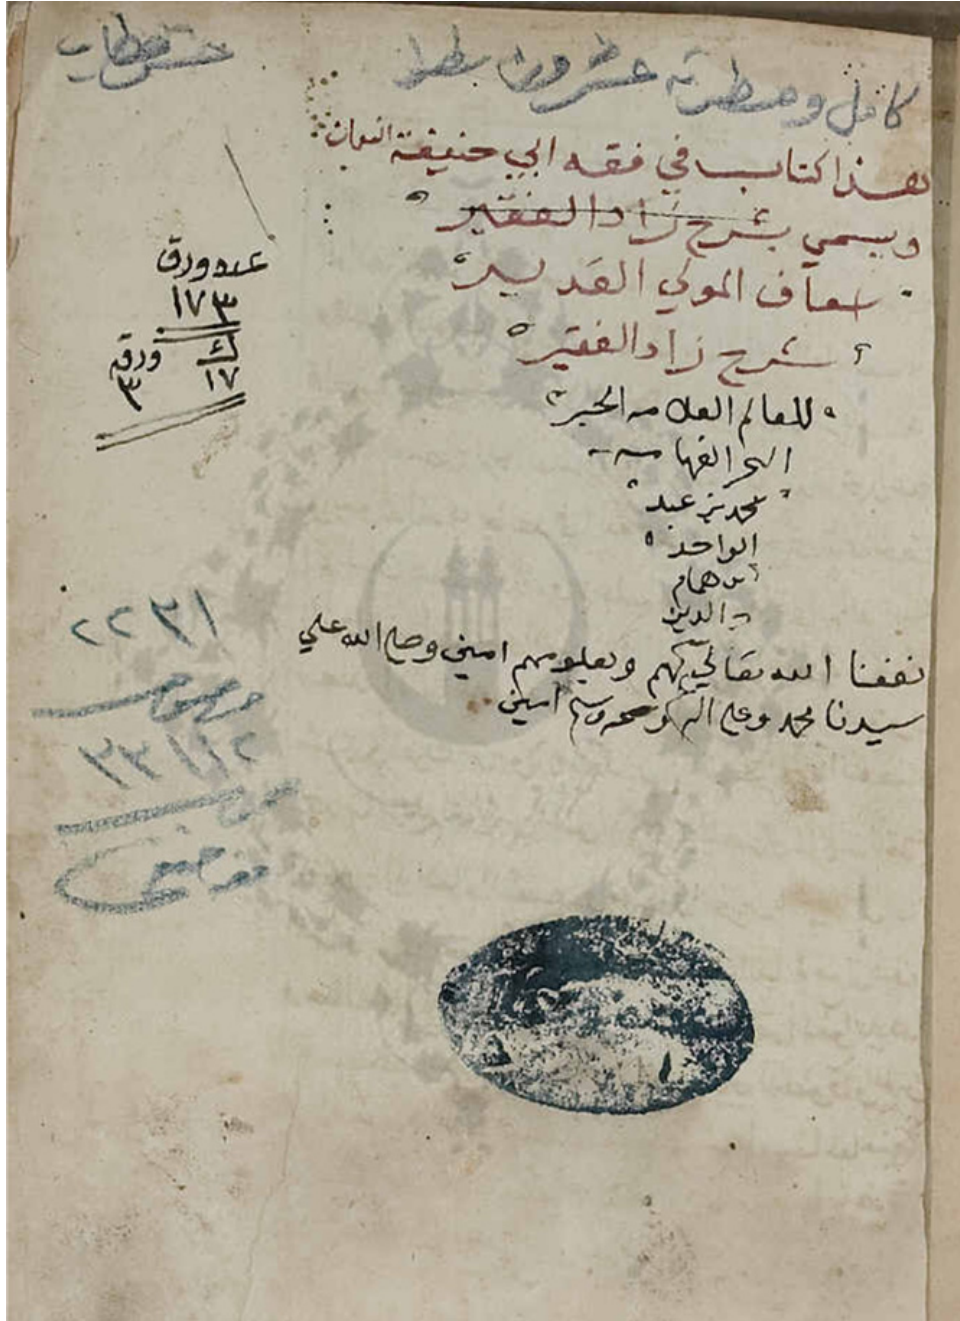 كامل ومسطرته عشرون سطرا
هذا كتاب في فقه ابي حنيفة النعمان
ويسمي بشرح زاد الفقير
اسعاف المولي القدير
شرح زاد الفقير
للعالم العلامه الحبر
البحر الفهامه
محمد بن عبد
الواحد
بن همام
الدين
نفعنا الله تعالي بهم وبعلومهم امين وصلي الله علي
سيدنا محمد وعلي اله وصحبه وسلم امين
عدد ورق
١٧٣
ك
١٧
ورقه
٣
٢٢٣١
خصوصيه
٣٣١٨٢
فقه حنفي